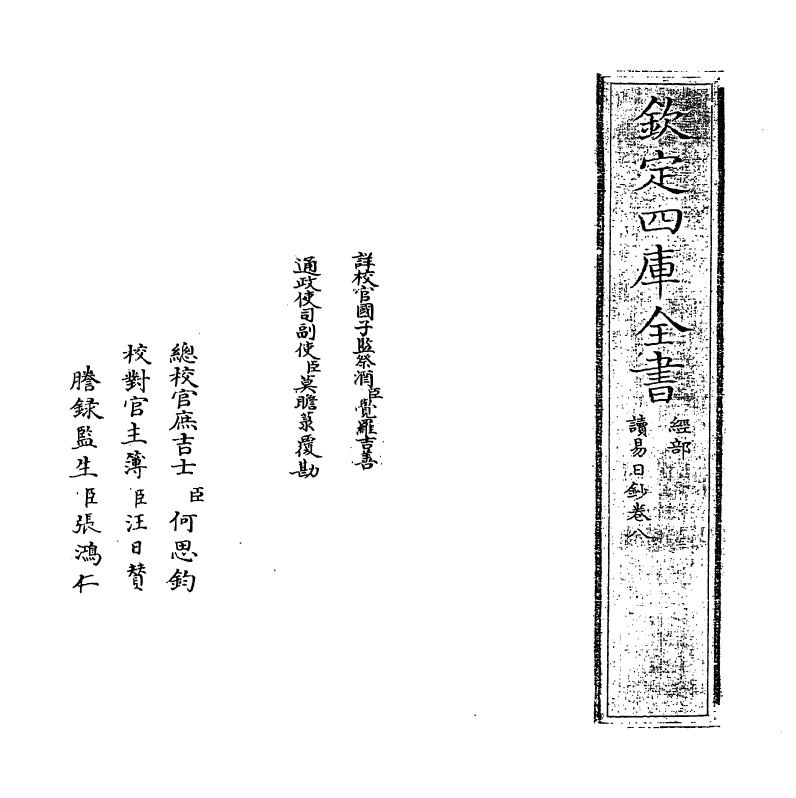 欽定四庫全書
經部
讀易日鈔卷八
詳校官國子監祭酒臣覺羅吉善
通政使司副使臣莫瞻菉覆勘
總校官庶吉士臣何思鈞
校對官主簿臣汪日贊
謄録監生臣張鴻仁